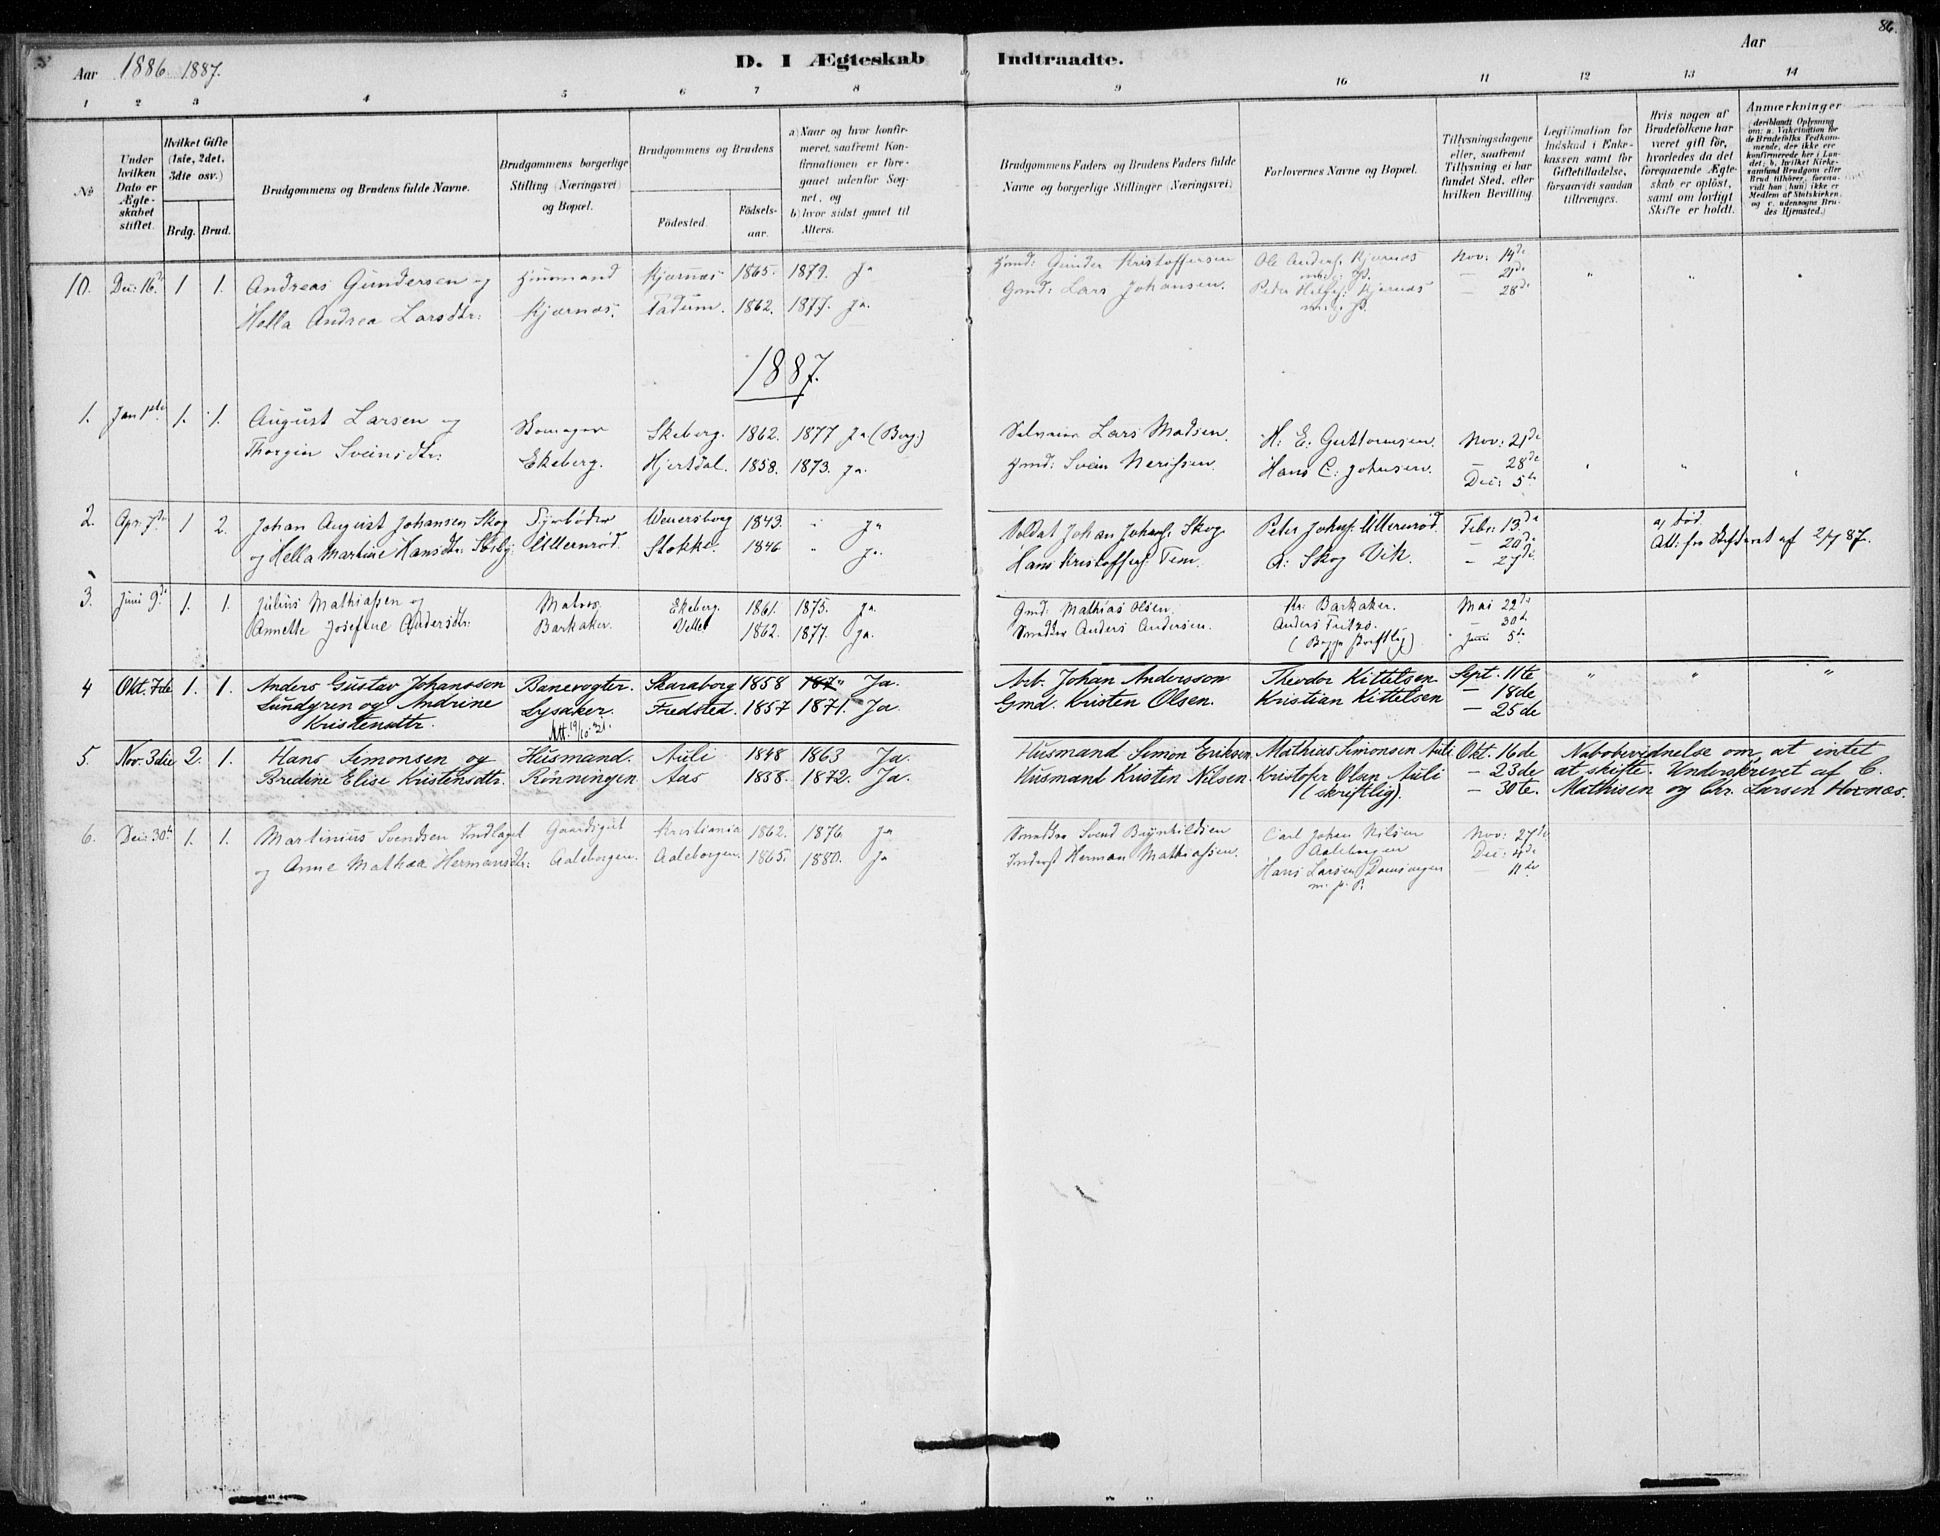 Aar 1886. 1887.
D. I Ægteskab Indtraadte.
Aar
86.
1 2 3 4 5 6 7 8 9 10 11 12 13 14
No
Under hvilken Dato er Ægteskabet stiftet.
Hvilket Gifte (1ste, 2det, 3die osv.)
Brdg. Brud.
Brudgommens og Brudens fulde Navne.
Brudgommens borgerlige Stilling (Næringsvei) og Bopæl.
Brudgommens og Brudens
Fødested. Fødselsaar.
a) Naar og hvor konfirmeret, saafremt Konfirmationen er foregaaet udenfor Sognet, og
b) hvor sidst gaaet til Alters.
Brudgommens Faders og Brudens Faders fulde Navne og borgerlige Stillinger (Næringsvei)
Forlovernes Navne og Bopæl.
Tillysningsdagene eller, saafremt Tillysning ei har fundet Sted, efter hvilken Bevilling.
Legitimation for Indskud i Enkekassen samt for Giftetilladelse, forsaavidt saadan tiltrænges.
Hvis nogen af Brudefolkene har været gift før, hvorledes da det foregaaende Ægteskab er opløst, samt om lovligt Skifte er holdt.
Anmærkninger (deriblandt Oplysning om: a. Vakcination for de Brudefolks Vedkommende, der ikke ere konfirmerede her i Landet; b. hvilket Kirkesamfund Brudgom eller Brud tilhører, forsaavidt han (hun) ikke er Medlem af Statskirken, og c. udensogns Brudes Hjemsted.)
10. Dec: 16de 1 1. Andreas Gundersen og Kjærnæs 1865. 1879. Ja Gmd: Gunder Kristoffersen Ole Anders. Kjærnæs Nov: 14de
Hella Andrea Larsdtr: Kjærnæs. Fadum. 1862. 1877. Ja. Gmd: Lars Johansen. Peder Helges: Kjærnæs — 21de
— 28de
1887.
1. Jan 1ste 1. 1. August Larsen og Ekeberg. Skeberg. 1862. 1877 Ja (Borg:) Lars Madsen. H: E: Guttormsen. Nov: 21de
Thorgier Sveinsdtr: Hjertdal. 1858. 1873. Ja. Gmd: Svein Nerissen. Hans C: Johnsen. — 28de
Dec: 5te
2. Apr. 7de 1 2. Johan August Johansen Skog Fyrbøder Wenersborg 1843. " Ja Soldat Johan Johans. Skog Peter Johns: Ullernrød. Febr: 13de a, død.
og Hella Martine Hansdtr: Ullernrød. Stokke. 1846 " Ja. Hans Kristoffers: Tem A: Skog Vik. — 20de Att: fra Skifteret af 2/4 87.
— 27de
3. Juni 9de 1. 1. Julius Mathiassen og Matros Ekeberg. 1861. 1875. Ja. Gmd: Mathias Olsen. Kr: Barkaker. Mai 22de
Annette Josefine Andersdtr: Barkaker. Velle 1862. 1877. Ja. Anders Andersen. Anders — 30te
(Begge skriftlig) Juni 5te
4 Okt. 7de 1. 1. Anders Gustav Johansson Banevogter. Skaraborg 1858 187" Ja. Arb. Johan Andersson Theodor Kittelsen Sept. 11te " " "
Lundgren og Andrine Lysaker. Fredsted. 1857 1871. Ja Gmd. Kristen Olsen. Kristian Kittelsen — 18de
Kristensdtr. Att. 19/10-31. — 25de
5. Nov. 3die 2. 1. Hans Simonsen og Husmand. Auli 1848 1863 Ja. Husmand Simon Eriksen Mathias Simonsen Auli Okt. 16de Nabobevidnelse om, at intet
Bredine Elise Kristensdtr. Rønningen Aas 1858. 1872. Ja. Husmand Kristen Nilsen. Kristofer Olsen Auli — 23de at skifte. Underskrevet af C.
(skriftlig). — 30te. Mathisen og Chr. Larsen Hornæs.
6. Dec: 30te 1. 1. Martinius Svendsen Indlaget Kristiania 1862. 1876. Ja Svend Brynhildsen Carl Johan Nilsen Nov: 27de
og Anne Mathea Hermansdtr: Aaleborgen. Aaleborgen. 1865. 1880. Ja Inderst Herman Mathiassen. Aaleborgen Dec: 4de
Hans Larsen — 11te